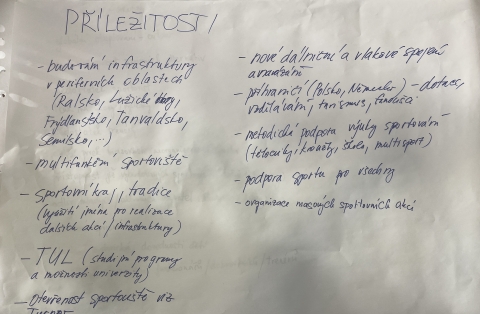 PŘÍLEŽITOSTI
- budování infrastruktury
v periferních oblastech
(Ralsko, Lužické hory,
Frýdlantsko, Tanvaldsko,
Semilsko, ...)
- multifunkční sportoviště
- sportovní kraj, tradice
(využití jména pro realizace
dalších akcí / infrastruktury)
- TUL (studijní programy
a možnosti univerzity)
- Otevřenost sportovišť viz
- nové dálniční a vlakové spojení
- příhraničí (Polsko, Německo) - dotace,
vzdělávání, turismus,
- metodická podpora výuky sportování
(tělocviky, kroužky, škola, multisport)
- podpora sportu pro všechny
- organizace masových sportovních akcí